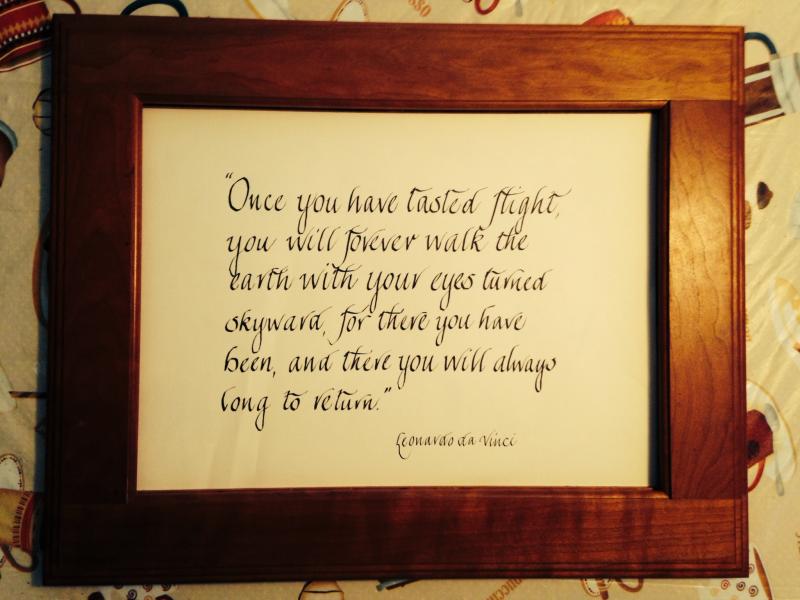 "Once you have tasted flight,
you will forever walk the
earth with your eyes turned
skyward, for there you have
been, and there you will always
long to return."
Leonardo da Vinci